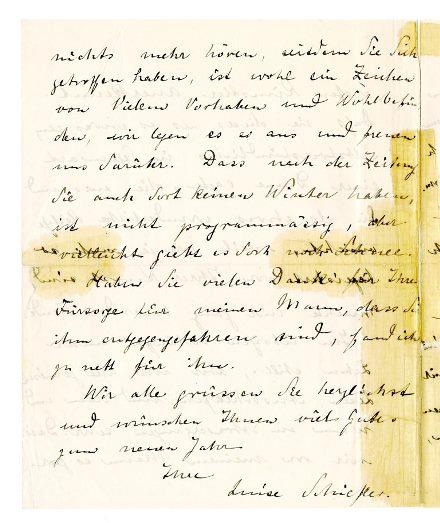 nichts mehr hören, seitdem Sie sich
getroffen haben, ist wohl ein Zeichen
von Vielem Vorhaben und Wohlbefin
den, wir legen es so aus und freuen
uns darüber. Dass nach der Zeitung
Sie auch dort keinen Winter haben,
ist nicht programmässig, aber
vielleicht giebt es dort noch Schnee.
Haben Sie vielen Dank für Ihre
Fürsorge für meinen Mann, dass Sie
ihm entgegengefahren sind, fand ich
zu nett für ihn.
Wir alle grüssen Sie herzlichst
und wünschen Ihnen viel Gutes
zum neuen Jahr
Ihre
Luise